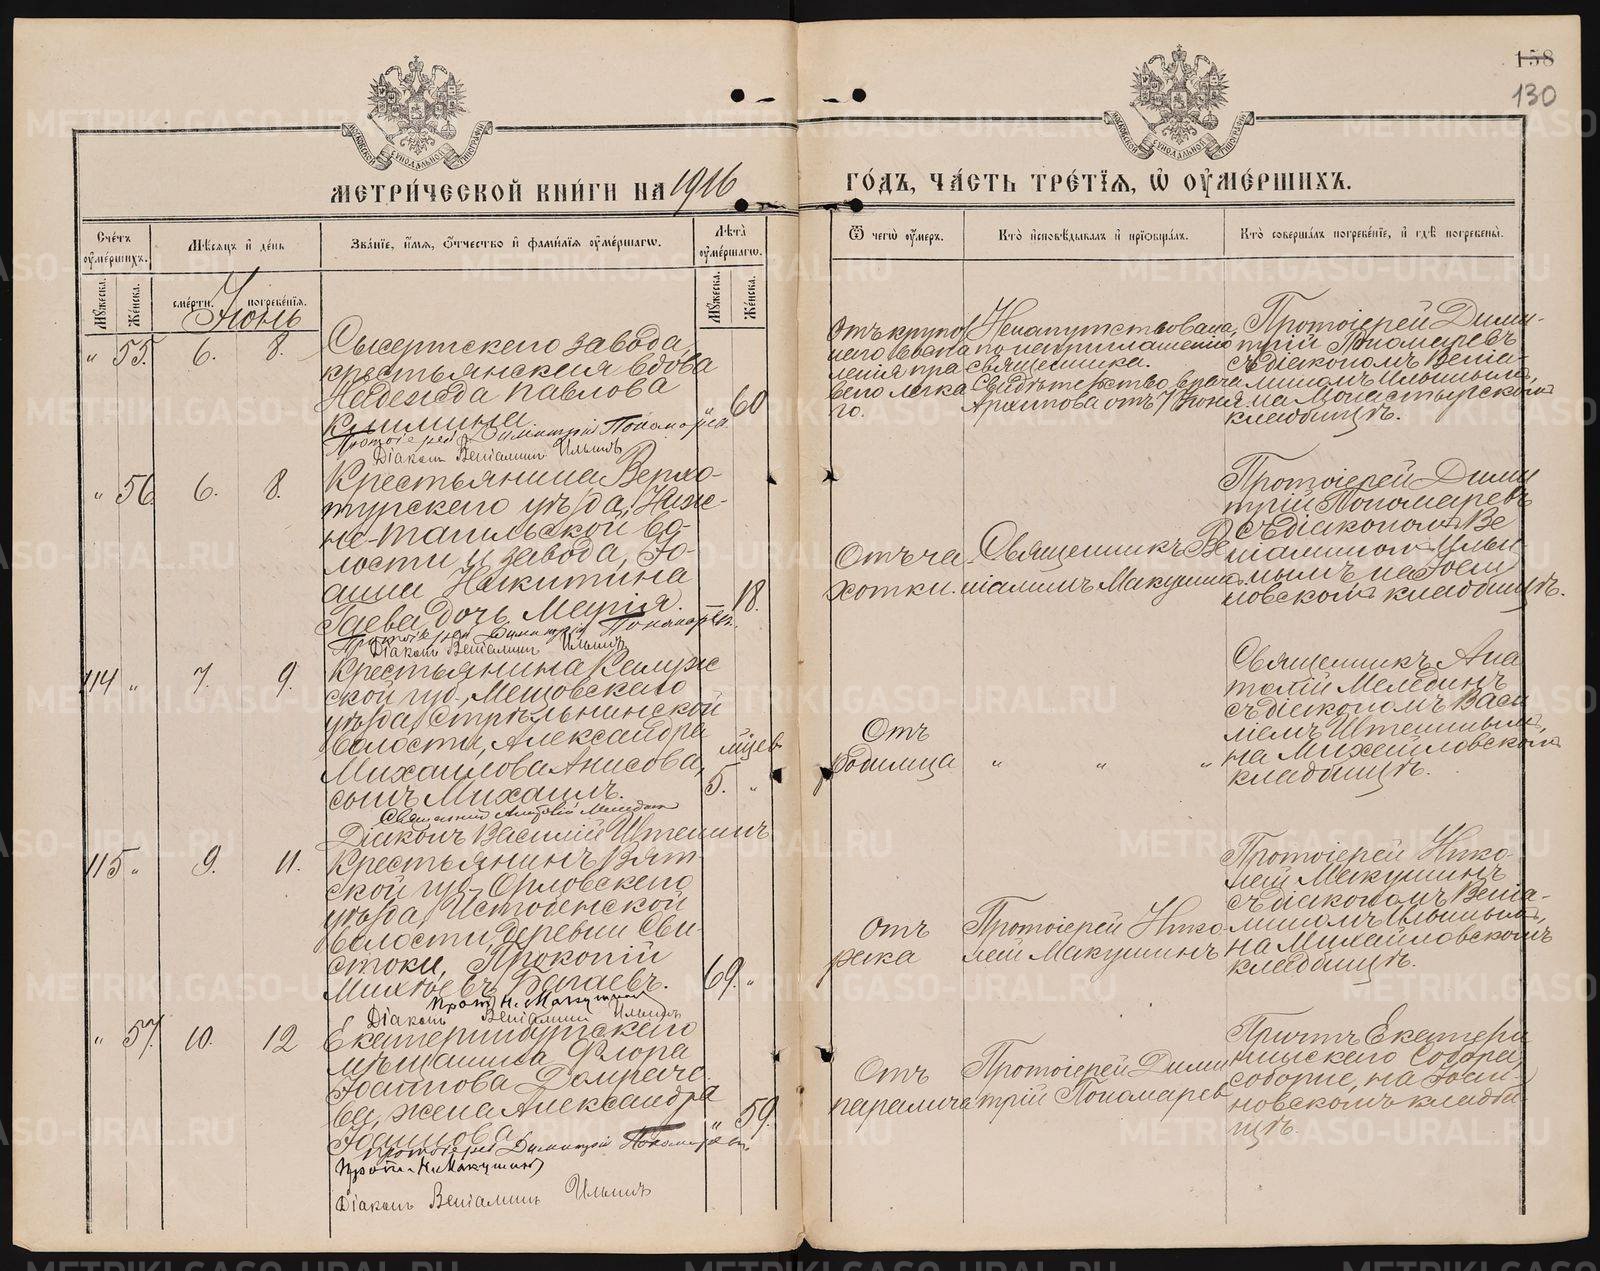 158
130
МОСКОВСКОЙ СѴНОДАЛЬНОЙ ТИПОГРАФІИ
МОСКОВСКОЙ СѴНОДАЛЬНОЙ ТИПОГРАФІИ
МЕТРИ́ЧЕСКОЙ КНИ́ГИ НА 1916
ГО́ДЪ, ЧА́СТЬ ТРЕ́ТЇѦ, Ѡ҆ ОУ҆МЕ́РШИХЪ.
Сче́тъ оу҆ме́ршихъ.
Мꙋжеска.
Же́нска.
Мѣ́сяцъ и҆ де́нь
сме́рти.
погребе́нїѧ.
Зва́нїе, и҆́мѧ, ѻ҆́тчество и҆ фами́лїѧ оу҆ме́ршагѡ.
Лѣ́та оу҆ме́ршагѡ.
Мꙋ́жеска.
Же́нска.
Ѿ чегѡ̀ оу҆́меръ.
Кто̀ и҆сповѣ́дывалъ и҆ прїѡбща́лъ.
Кто̀ соверша́лъ погребе́нїе, и҆ гдѣ̀ погребены̀.
Іюнь
" 55. 6. 8.
Сысертскаго завода
крестьянская вдова
Надежда Павлова
" 60
Протоіерей Димитрій Пономарев
Діаконъ Веніаминъ Ильинъ
Отъ крупоз
наго воспа
ленія пра
ваго легка
го.
Ненапутствована,
по неприглашенію
священника.
Свидѣтельство врача
Архипова отъ 7 Іюня
Протоіерей Дими-
трій Пономаревъ
съ діакономъ Веніа-
миномъ Ильинымъ,
на Монастырскомъ
кладбищѣ.
" 56. 6. 8.
Крестьянина Верхо-
турскаго уѣзда, Ниж-
не-Тагильской во-
лости и завода, Іо-
анна Никитина
Гаева дочь Марія.
— 18.
Протоіерей Димитрій Пономарев.
Діаконъ Веніаминъ Ильинъ
Отъ ча
хотки.
Священникъ Ве
ніаминъ Макушинъ.
Протоіерей Дими
трій Пономаревъ
съ діакономъ Ве
ніаминомъ Ильи
нымъ, на Іоан
новскомъ кладбищѣ.
114 " 7. 9.
Крестьянина Калуж
ской губ., Мещовскаго
уѣзда, Стрѣльнинской
волости, Александра
Михаилова Анисова,
сынъ Михаилъ.
мѣсяцев
5. "
Священникъ Анатолій Меледин
Діаконъ Василій Штенинъ
Отъ
родимца
" " "
Священникъ Ана
толій Мелединъ
съ діакономъ Васи
ліемъ Штенинымъ,
на Михайловскомъ
кладбищѣ.
115 " 9. 11.
Крестьянинъ Вят-
ской губ. Орловскаго
уѣзда, Истобенской
волости, деревни Сви-
стоки, Прокопій
69. "
Прот. Н. Макушинъ
Діаконъ Веніаминъ Ильинъ
Отъ
рака
Протоіерей Нико
лай Макушинъ
Протоіерей Нико-
лай Макушинъ
съ діакономъ Веніа-
миномъ Ильинымъ,
на Михайловскомъ
кладбищѣ.
" 57. 10. 12
Екатеринбургскаго
мѣщанина Флора
Іоаннова Домраче-
ва, жена Александра
Іоаннова
" 59.
Протоіерей Димитрій Пономарев.
Прот. Н. Макушинъ
Діаконъ Веніаминъ Ильинъ
Отъ
паралича
Протоіерей Дими
трій Пономарев
Причтъ Екатери
нинскаго Собора,
соборне, на Іоан-
новскомъ кладби-
щѣ.